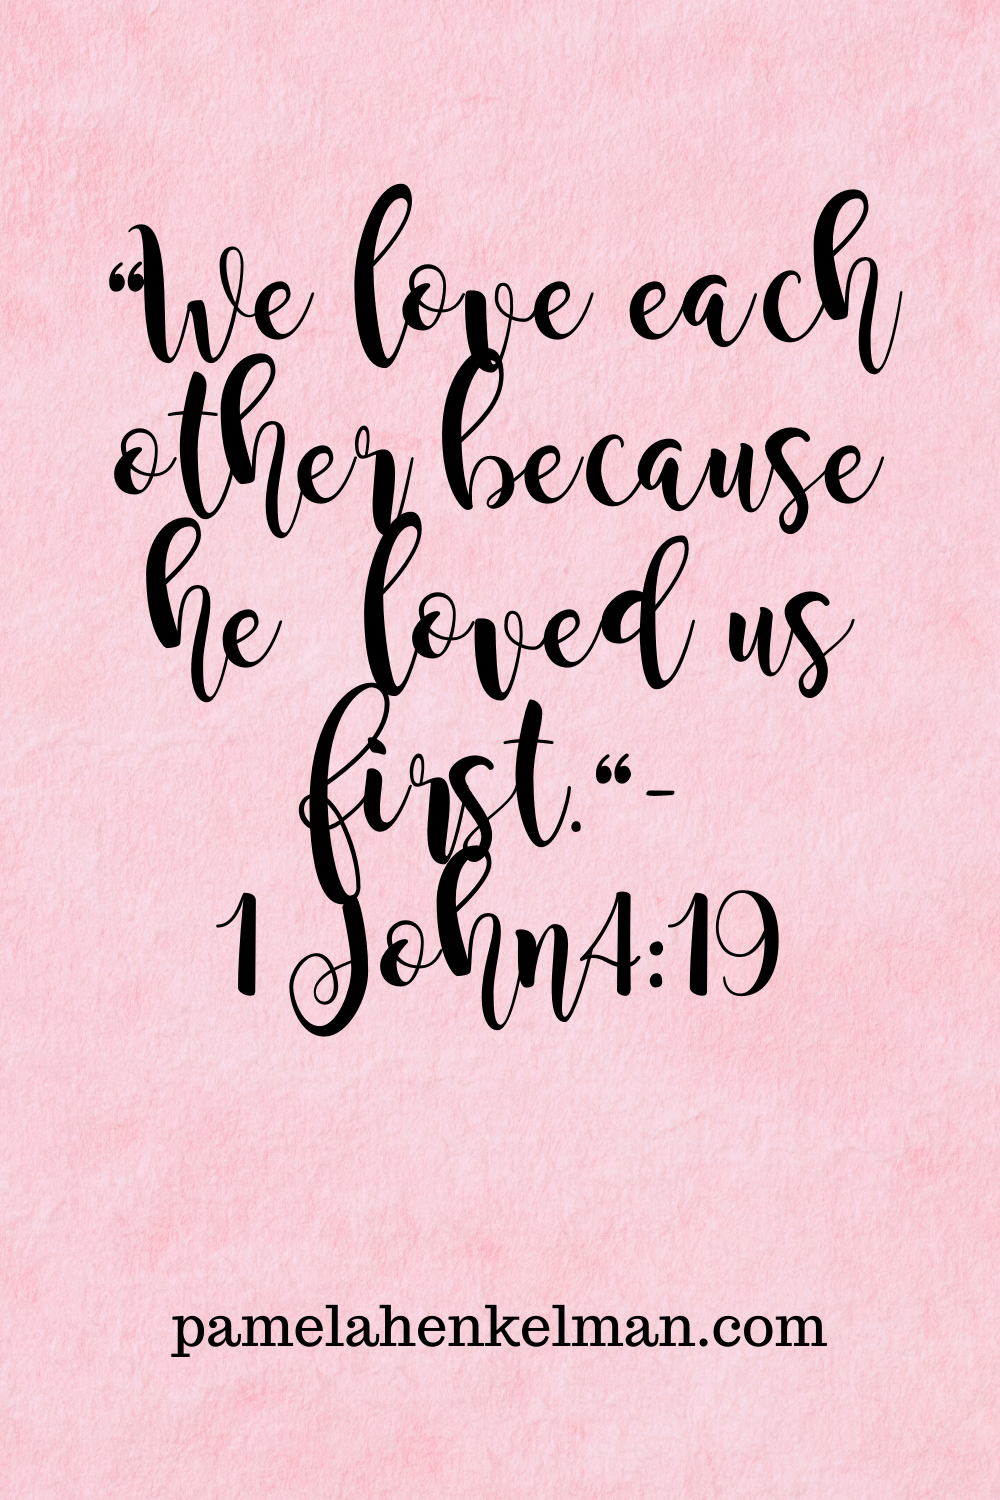 “We love each
other because
he loved us
first.“-
1 John4:19
pamelahenkelman.com